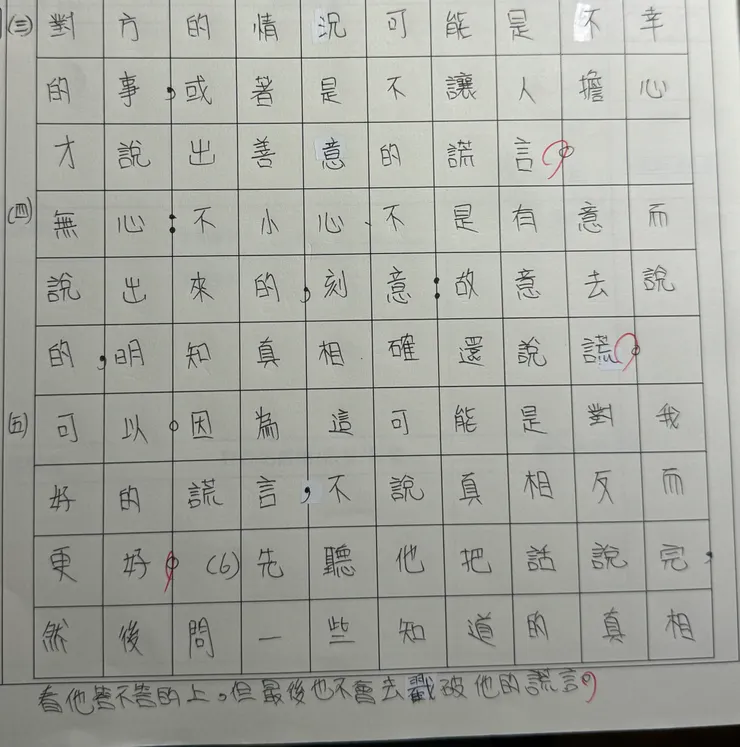 (三)對方的情況可能是不幸
的事,或著是不讓人擔心
才說出善意的謊言。
(四)無心:不小心、不是有意而
說出來的,刻意:故意去說
的,明知真相確還說謊。
(五)可以。因為這可能是對我
好的謊言,不說真相反而
更好。(6)先聽他把話說完,
然後問一些知道的真相
看他答不答的上,但最後也不會去戳破他的謊言。